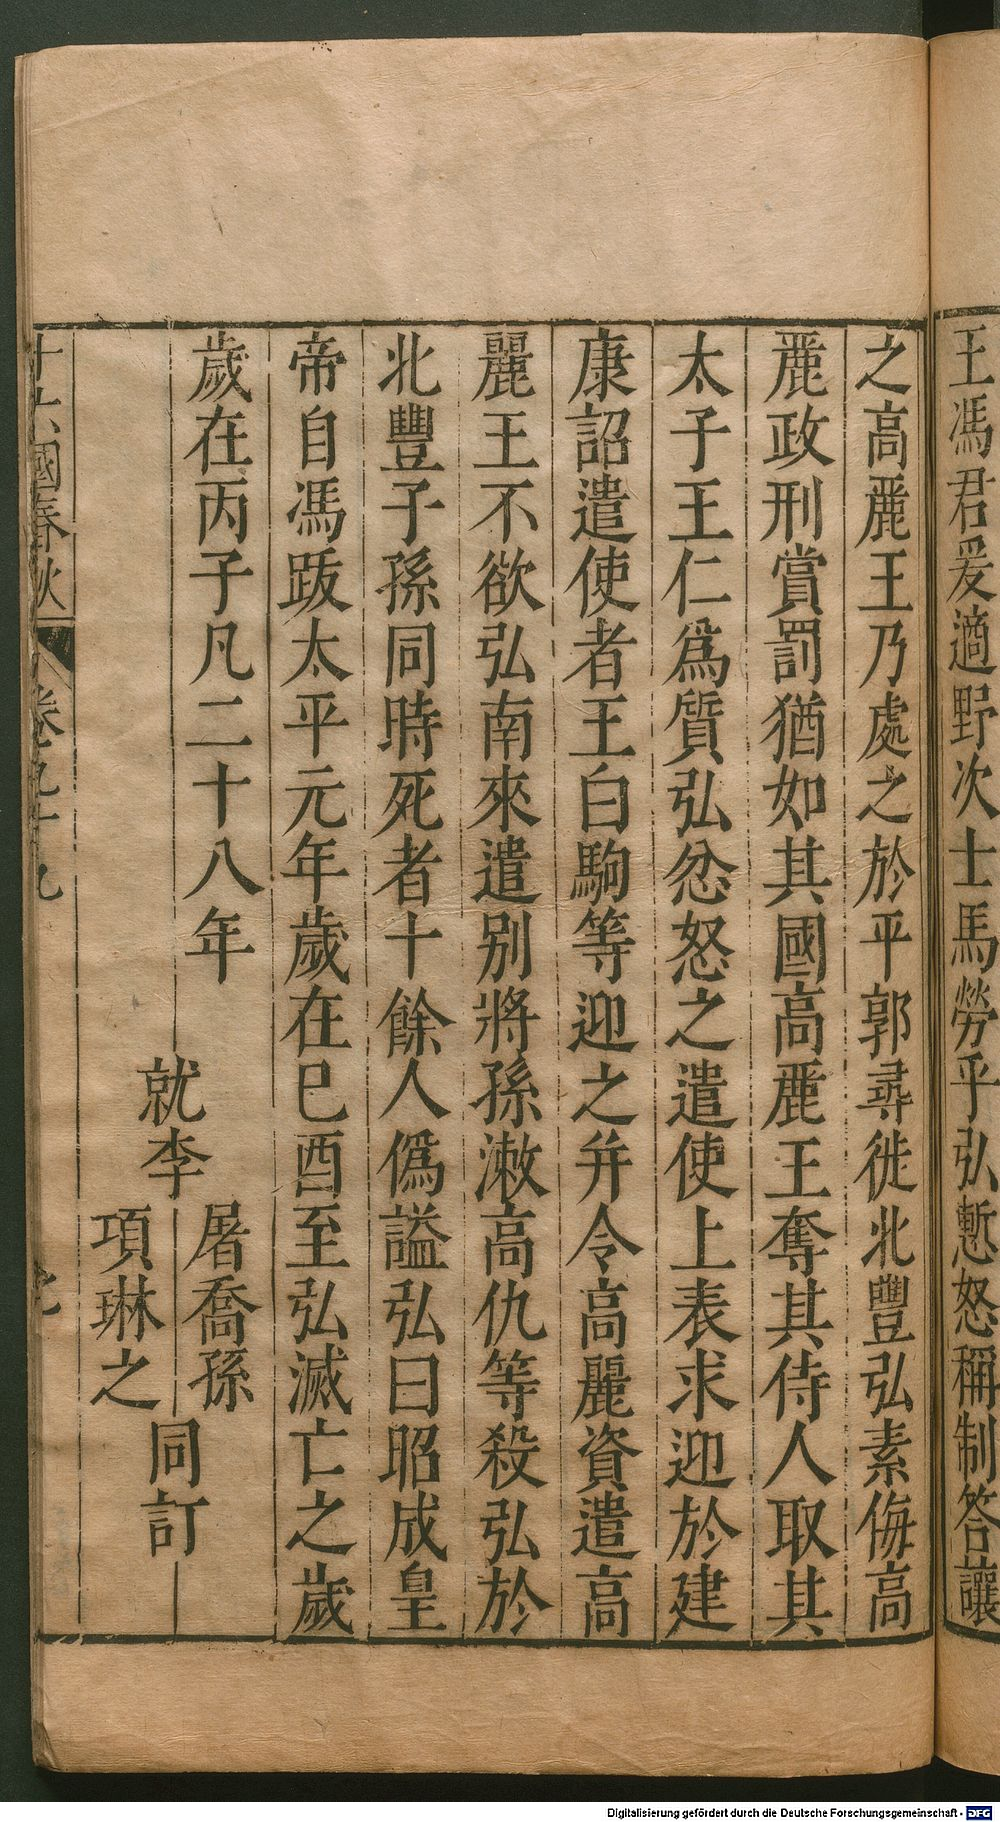 王馮君爰適野次士馬勞乎弘慙怒稱制答讓
之高麗王乃處之於平郭尋徙北豐弘素侮高
麗政刑賞罰猶如其國高麗王奪其侍人取其
太子王仁爲質弘忿怒之遣使上表求迎於建
康詔遣使者王白駒等迎之并令高麗資遣高
麗王不欲弘南來遣别將孫漱高仇等殺弘於
北豐子孫同時死者十餘人僞謚弘曰昭成皇
帝自馮跋太平元年歲在巳酉至弘滅亡之歲
歲在丙子凡二十八年
就李
屠喬孫
項琳之
同訂
十六國春秋
卷九十九
Digitalisierung gefördert durch die Deutsche Forschungsgemeinschaft - DFG